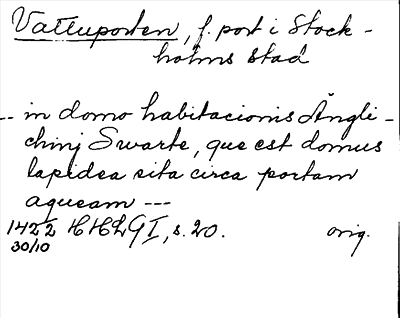 Vattuporten, f. port i Stock-
holms stad
-- in domo habitacionis Ängli-
chinj Swarte, que est domus
lapidea sita circa portam
aqueam ---
1422 HHLG I, s. 20. orig.
30/10